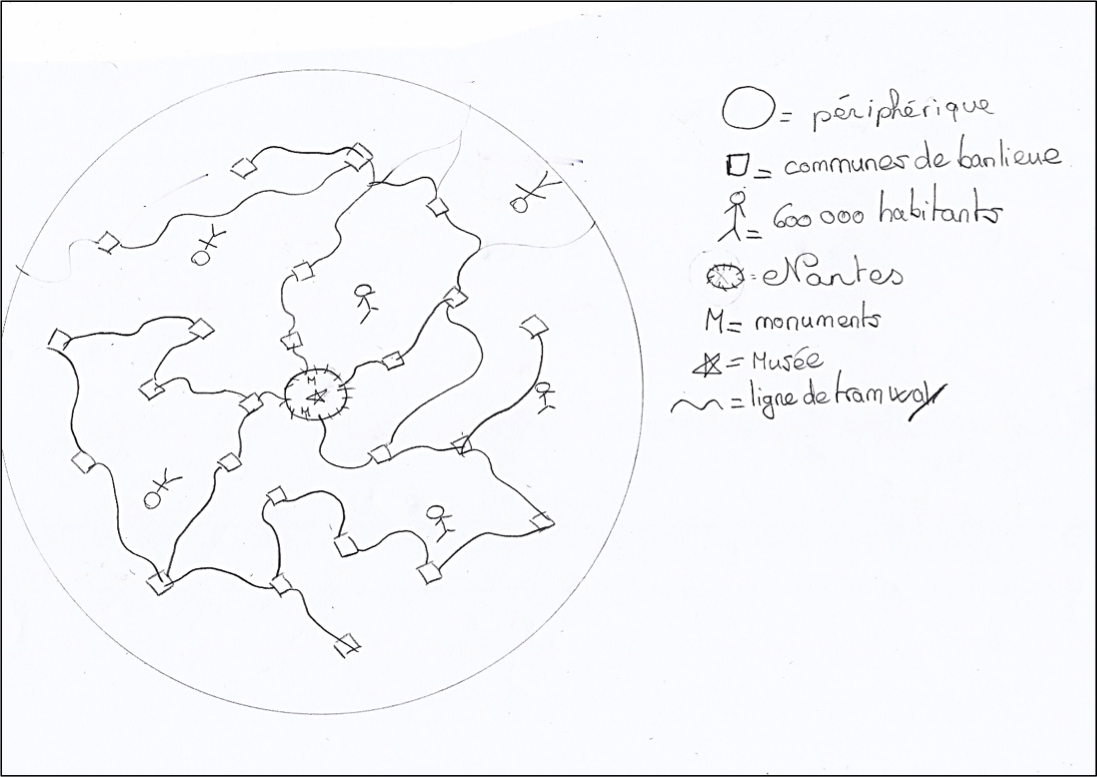 M
M
= périphérique
= communes de banlieue
= 600 000 habitants
= Nantes
M = monuments
= Musée
= ligne de tramway